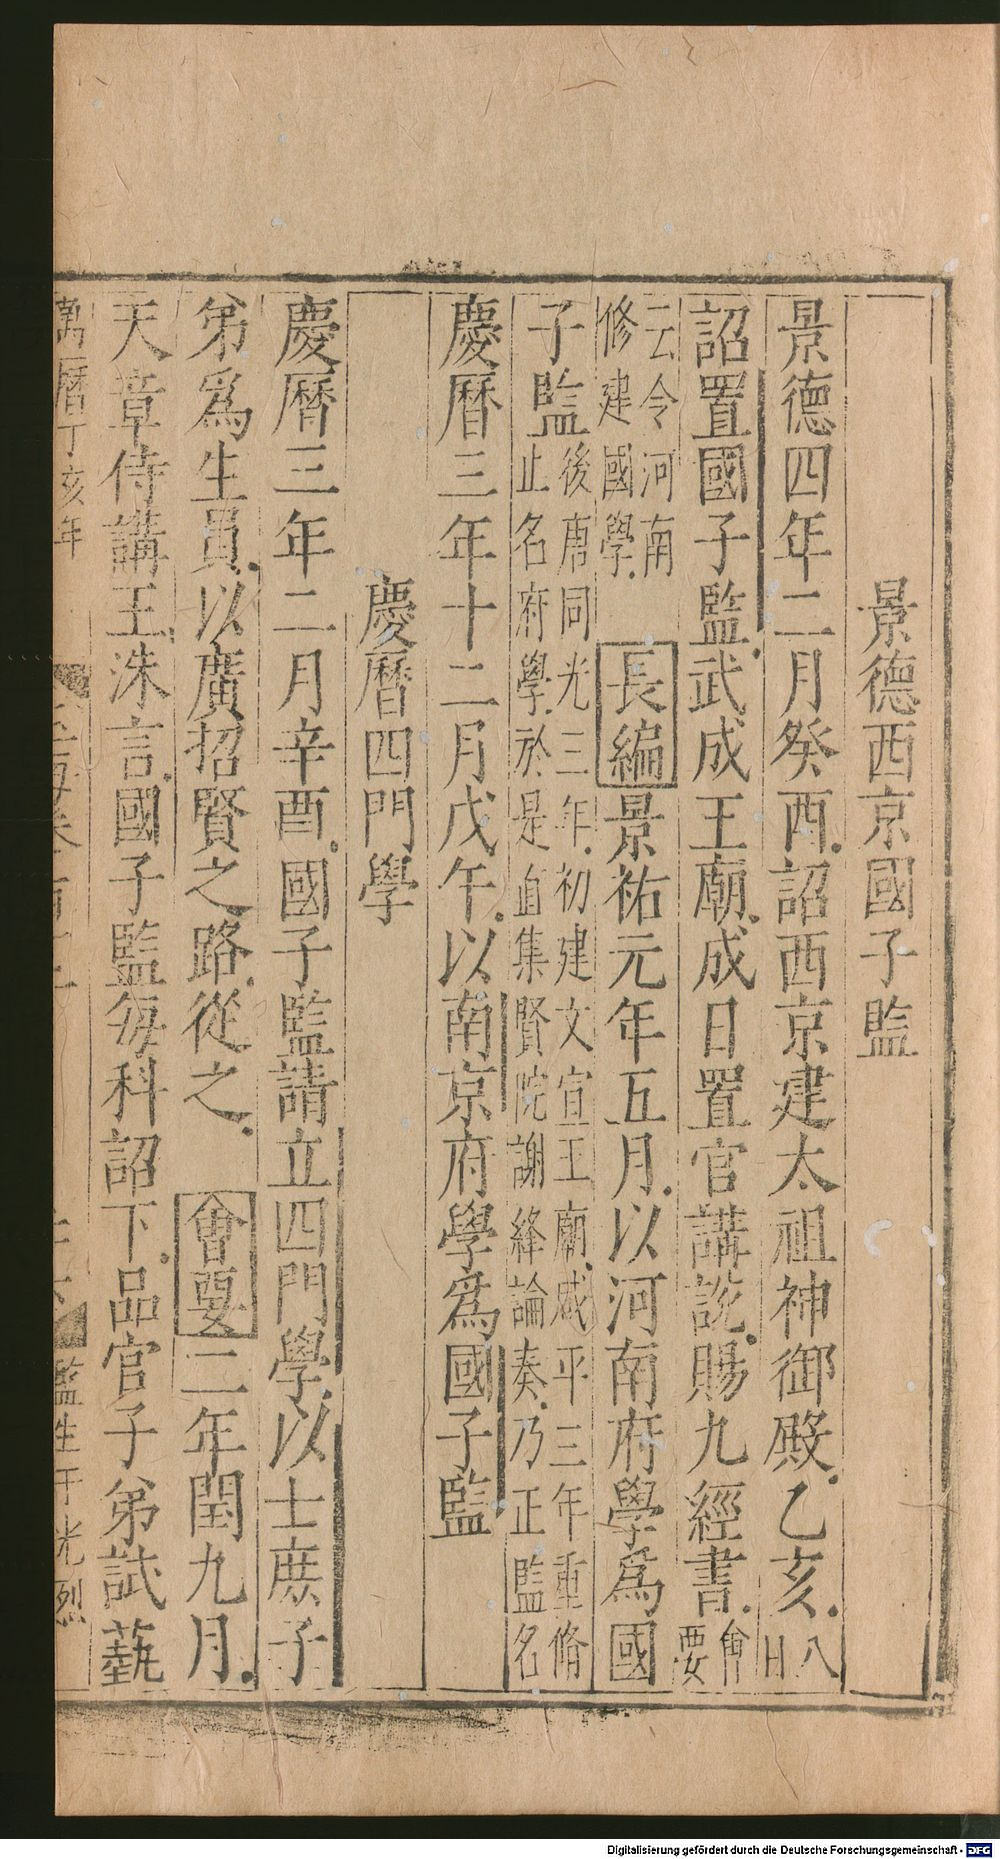 景德西京國子監
景德四年二月癸酉詔西京建太祖神御殿乙亥八日
詔置國子監武成王廟成日置官講說賜九經書會要
云令河南修建國學 長編景祐元年五月以河南府學爲國
子監後唐同光三年初建文宣王廟咸平三年重脩止名府學於是自集賢院謝絳論奏乃正監名
慶曆三年十二月戊午以南京府學爲國子監
慶曆四門學
慶曆三年二月辛酉國子監請立四門學以士庶子
弟爲生員以廣招賢之路從之 會要二年閏九月
天章侍講王洙言國子監每科詔下品官子弟試藝
萬曆丁亥年 監生于光烈
Digitalisierung gefördert durch die Deutsche Forschungsgemeinschaft - DFG